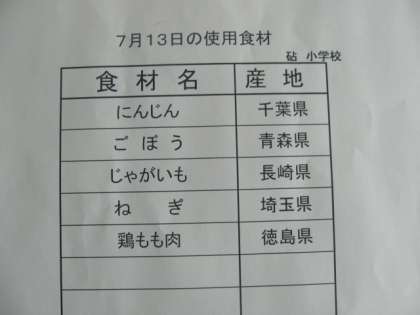 7月13日の使用食材
砧 小学校
食材名 産地
にんじん 千葉県
ごぼう 青森県
じゃがいも 長崎県
ねぎ 埼玉県
鶏もも肉 徳島県